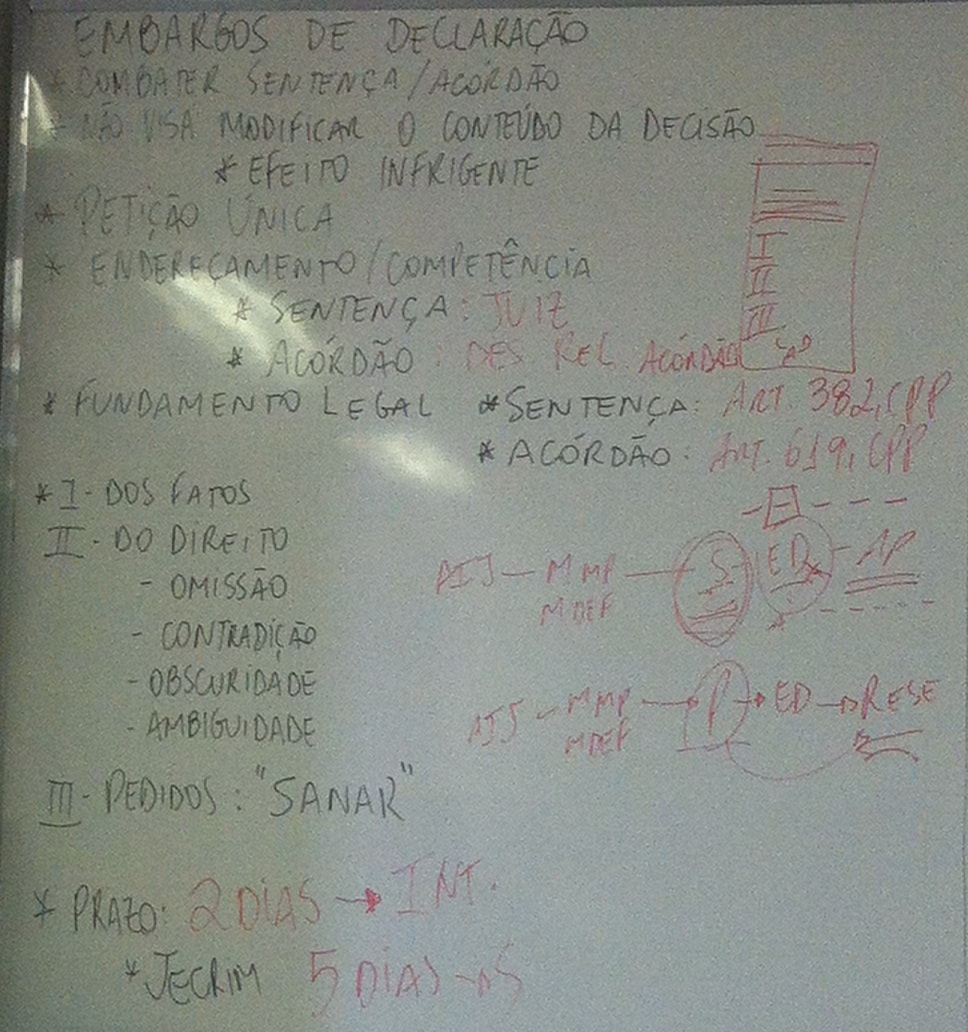 EMBARGOS DE DECLARAÇÃO
* COMBATER SENTENÇA/ACÓRDÃO
* NÃO VISA MODIFICAR O CONTEÚDO DA DECISÃO
* EFEITO INFRIGENTE
* PETIÇÃO ÚNICA
* ENDEREÇAMENTO/COMPETÊNCIA
* SENTENÇA: JUIZ
* ACÓRDÃO: DES. REL. ACÓRDÃO
I
II
III
* FUNDAMENTO LEGAL * SENTENÇA: ART. 382, CPP
* ACÓRDÃO: ART. 619, CPP
* I - DOS FATOS
II - DO DIREITO
- OMISSÃO
- CONTRADIÇÃO
- OBSCURIDADE
- AMBIGUIDADE
AIJ - MMP — S ED - AP
MDEF
AIJ - MMP → P → ED → RESE
MDEF
III - PEDIDOS: "SANAR"
* PRAZO: 2 DIAS → INT.
* JECRIM 5 DIAS